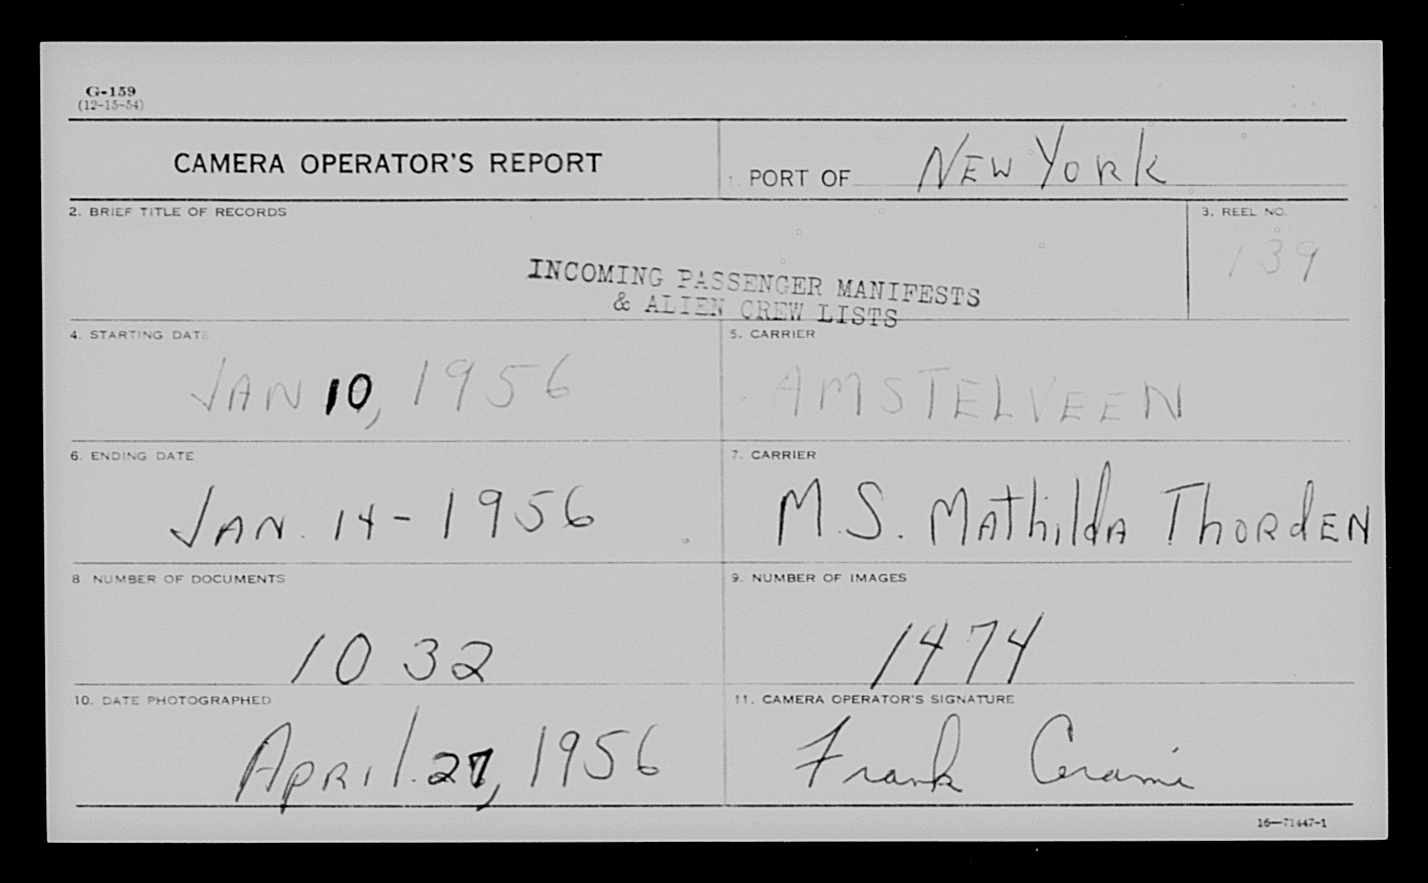 G-159
(12-15-54)
CAMERA OPERATOR'S REPORT
1. PORT OF NEW YORK
2. BRIEF TITLE OF RECORDS
INCOMING PASSENGER MANIFESTS
& ALIEN CREW LISTS
3. REEL NO.
139
4. STARTING DATE
JAN 10, 1956
5. CARRIER
AMSTELVEEN
6. ENDING DATE
JAN. 14 - 1956
7. CARRIER
M.S. MAthildA ThORdEN
8 NUMBER OF DOCUMENTS
1032
9. NUMBER OF IMAGES
1474
10. DATE PHOTOGRAPHED
APRIL 27, 1956
11. CAMERA OPERATOR'S SIGNATURE
Frank Cerami
16—71447-1